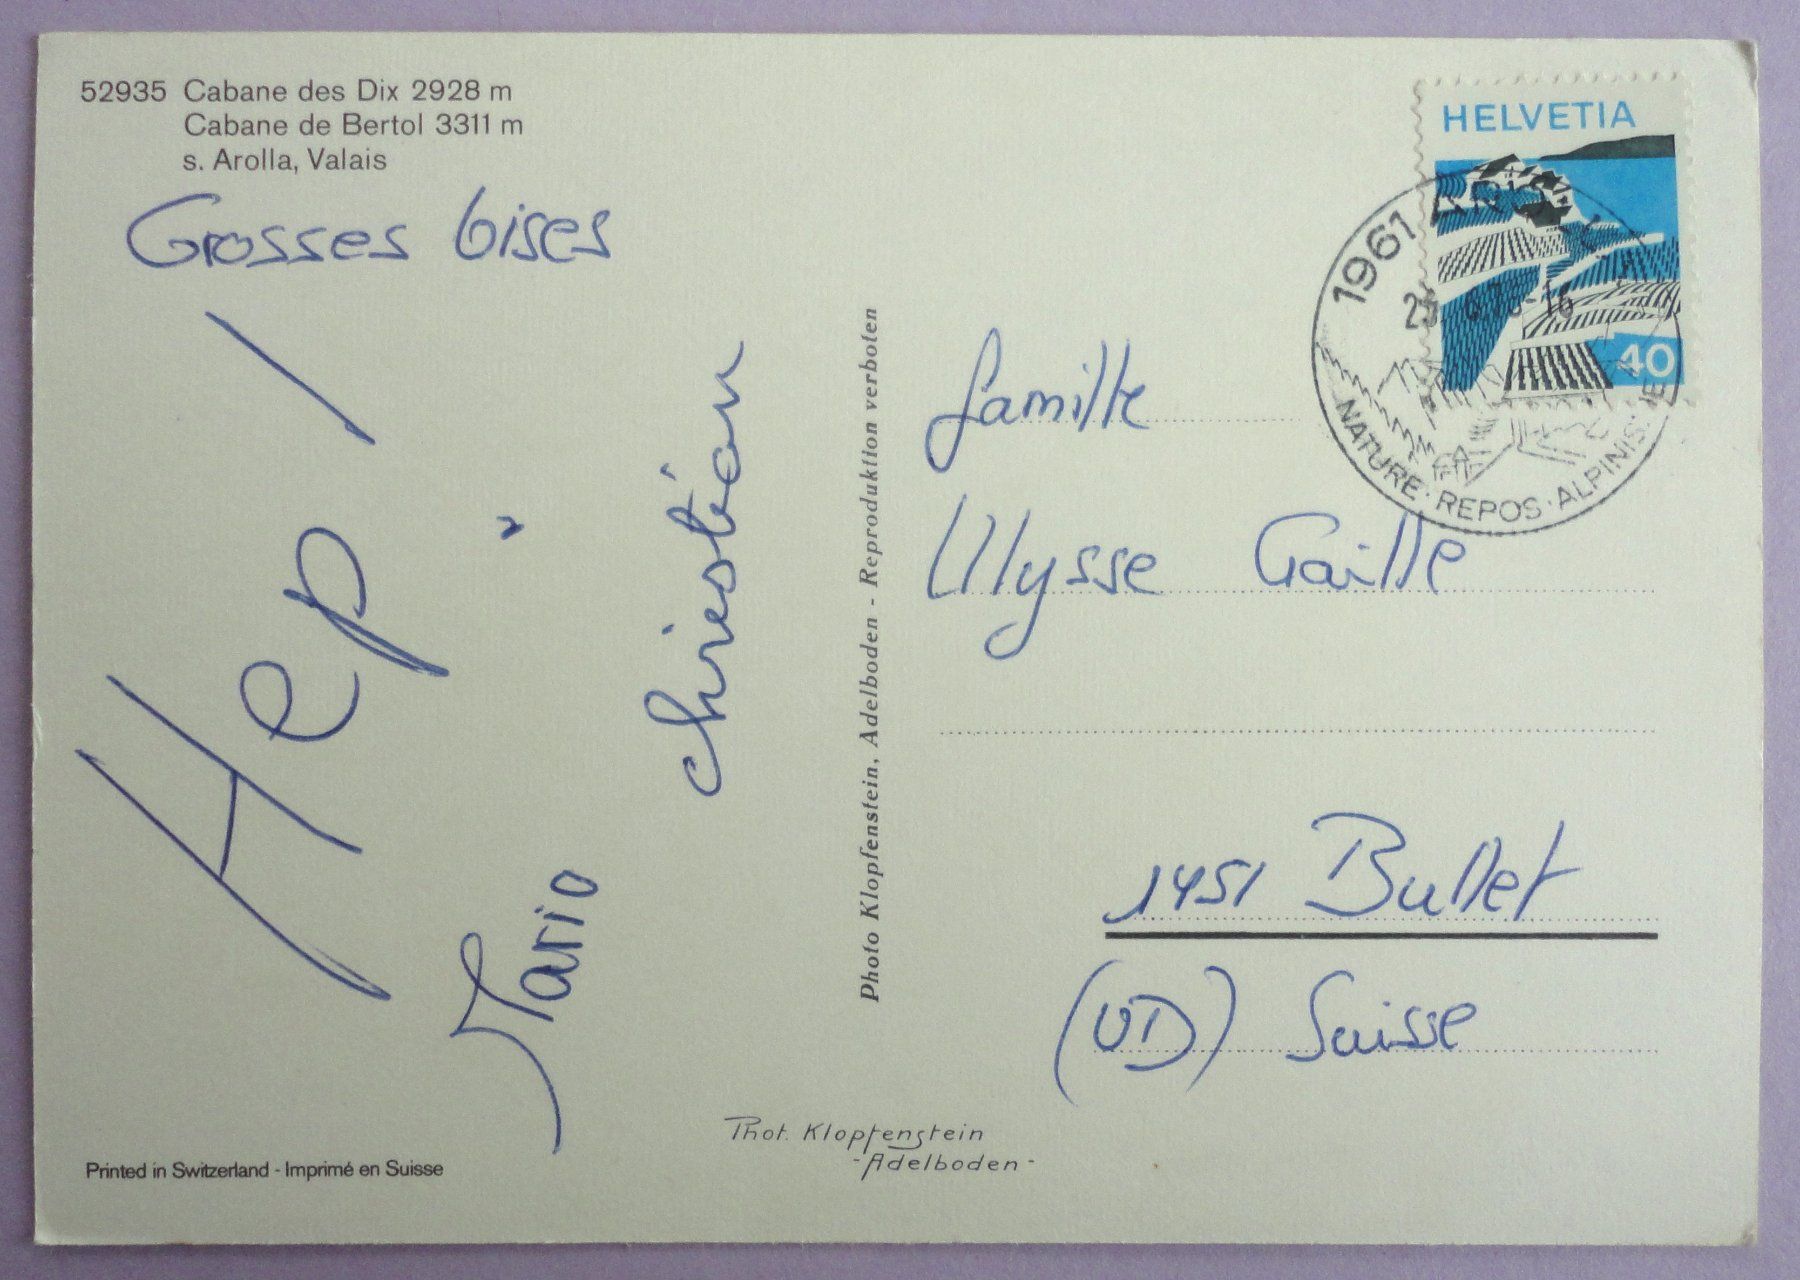 52935 Cabane des Dix 2928 m
Cabane de Bertol 3311 m
s. Arolla, Valais
Grosses bises
Hep!
Mario
christian
Photo Klopfenstein, Adelboden - Reproduktion verboten
HELVETIA
40
1961
NATURE · REPOS · ALPINIS
famille
Ulysse Gaille
1451 Bullet
(VD) Suisse
Phot. Klopfenstein
- Adelboden -
Printed in Switzerland - Imprimé en Suisse